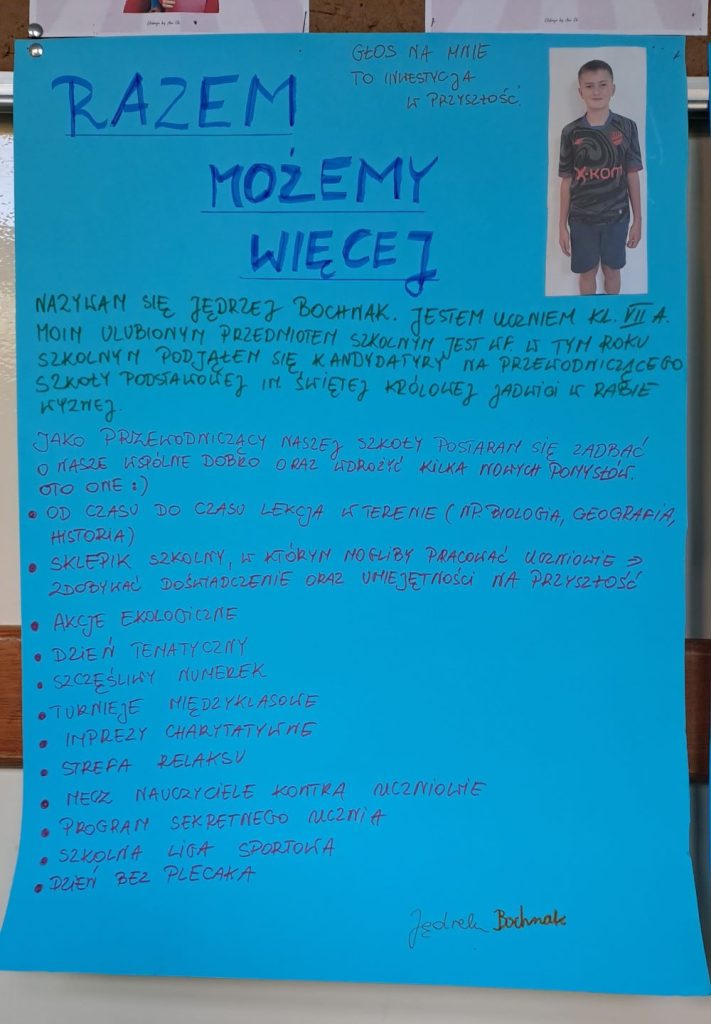 GŁOS NA MNIE
TO INWESTYCJA
W PRZYSZŁOŚĆ.
RAZEM
MOŻEMY
WIĘCEJ
X-KOM
NAZYWAM SIĘ JĘDRZEJ BOCHNAK. JESTEM UCZNIEM KL. VII A.
MOIM ULUBIONYM PRZEDMIOTEM SZKOLNYM JEST WF. W TYM ROKU
SZKOLNYM PODJĄŁEM SIĘ KANDYDATURY NA PRZEWODNICZĄCEGO
SZKOŁY PODSTAWOWEJ IM. ŚWIĘTEJ KRÓLOWEJ JADWIGI W RABIE
WYŻNEJ.
JAKO PRZEWODNICZĄCY NASZEJ SZKOŁY POSTARAM SIĘ ZADBAĆ
O NASZE WSPÓLNE DOBRO ORAZ WDROŻYĆ KILKA NOWYCH POMYSŁÓW.
OTO ONE :)
• OD CZASU DO CZASU LEKCJA W TERENIE (NP. BIOLOGIA, GEOGRAFIA,
HISTORIA)
• SKLEPIK SZKOLNY, W KTÓRYM MOGLIBY PRACOWAĆ UCZNIOWIE ⇒
ZDOBYWAĆ DOŚWIADCZENIE ORAZ UMIEJĘTNOŚCI NA PRZYSZŁOŚĆ
• AKCJE EKOLOGICZNE
• DZIEŃ TEMATYCZNY
• SZCZĘŚLIWY NUMEREK
• TURNIEJE MIĘDZYKLASOWE
• IMPREZY CHARYTATYWNE
• STREFA RELAKSU
• MECZ NAUCZYCIELE KONTRA UCZNIOWIE
• PROGRAM SEKRETNEGO UCZNIA
• SZKOLNA LIGA SPORTOWA
• DZIEŃ BEZ PLECAKA
Jędrek Bochnak